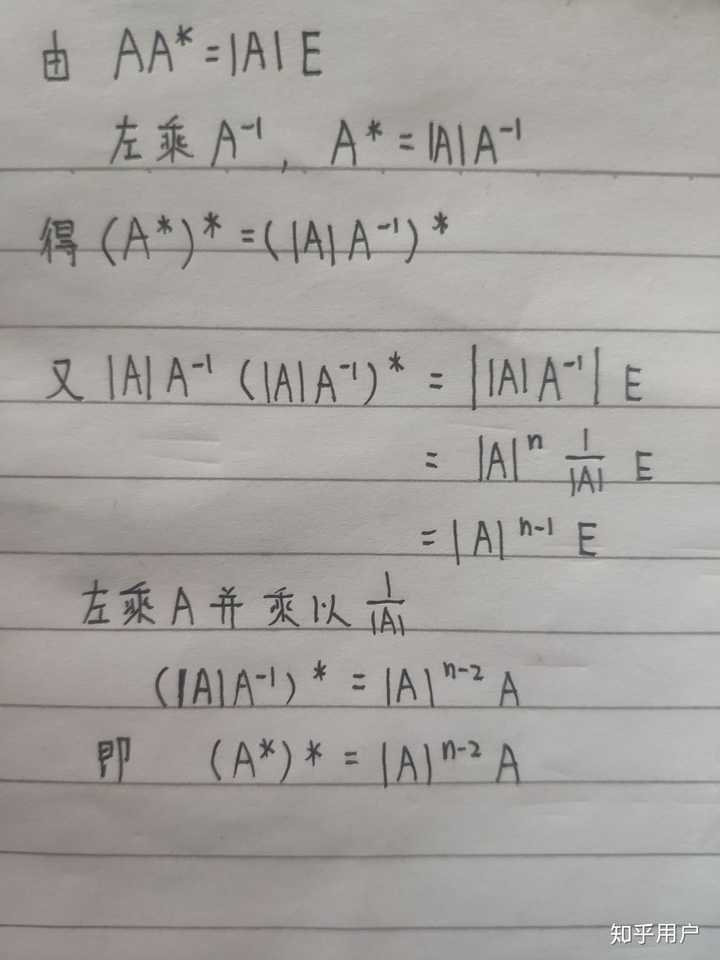 由 AA* = |A| E
左乘 A⁻¹, A* = |A| A⁻¹
得 (A*)* = (|A| A⁻¹)*
又 |A| A⁻¹ (|A| A⁻¹)* = ||A| A⁻¹| E
= |A|ⁿ 1/|A| E
= |A|ⁿ⁻¹ E
左乘 A 并乘以 1/|A|
(|A| A⁻¹)* = |A|ⁿ⁻² A
即 (A*)* = |A|ⁿ⁻² A
知乎用户